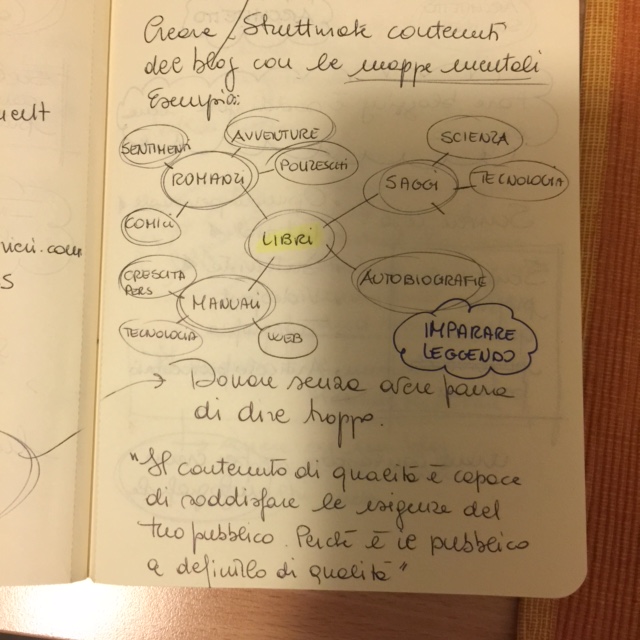 Creare / Strutturate contenuti
del blog con le mappe mentali
Esempio:
AVVENTURE
SENTIMENTI
POLIZIESCHI
ROMANZI
COMICI
SCIENZA
SAGGI
TECNOLOGIA
LIBRI
CRESCITA
PERS
MANUALI
TECNOLOGIA
WEB
AUTOBIOGRAFIE
IMPARARE
LEGGENDO
Donare senza avere paura
di dire troppo.
"Il contenuto di qualità è capace
di soddisfare le esigenze del
tuo pubblico. Perché è il pubblico
a definirlo di qualità"